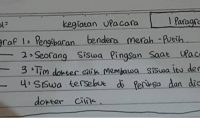 kegiatan upacara 1 Paragra
graf 1: Pengibaran bendera merah-Putih
2. Seorang Siswa Pingsan Saat upac
3. Tim dokter cilik Membawa siswa itu de
4. Siswa tersebut di Periksa dan di
dokter Cilik.